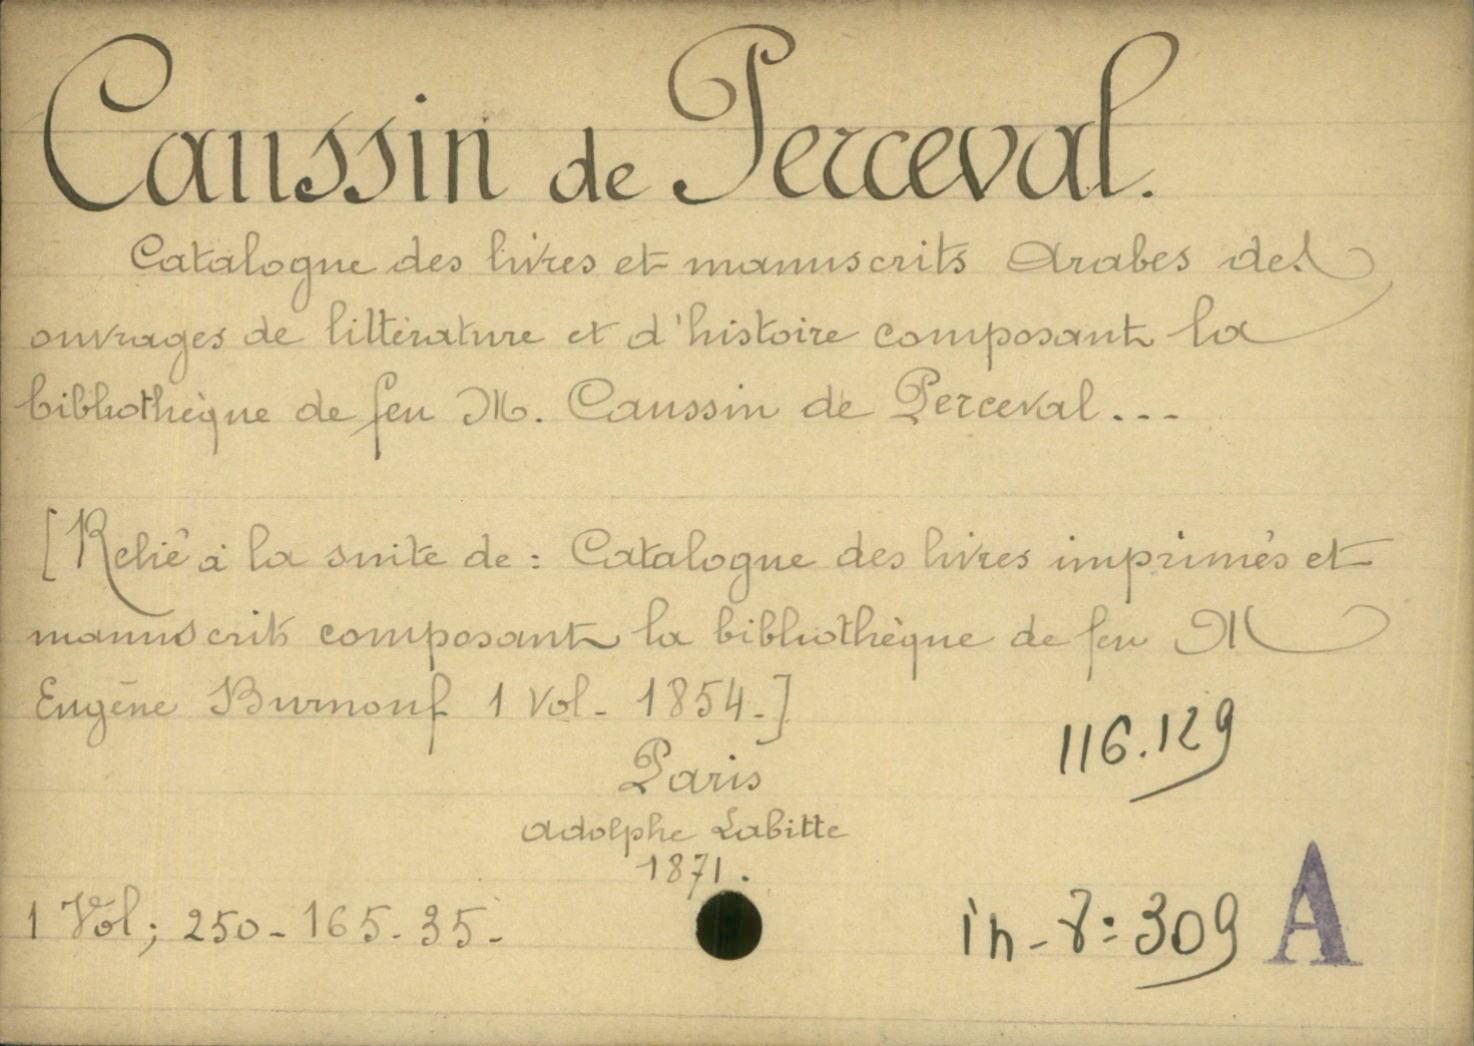 Caussin de Perceval.
Catalogue des livres et manuscrits Arabes des
ouvrages de littérature et d'histoire composant la
bibliothèque de feu M. Caussin de Perceval...
[Relié à la suite de : Catalogue des livres imprimés et
manuscrits composant la bibliothèque de feu M
Eugène Burnouf 1 Vol - 1854.]
116.129
Paris
Adolphe Labitte
1871.
1 Vol; 250 - 165 - 35 -
in-8: 309 A